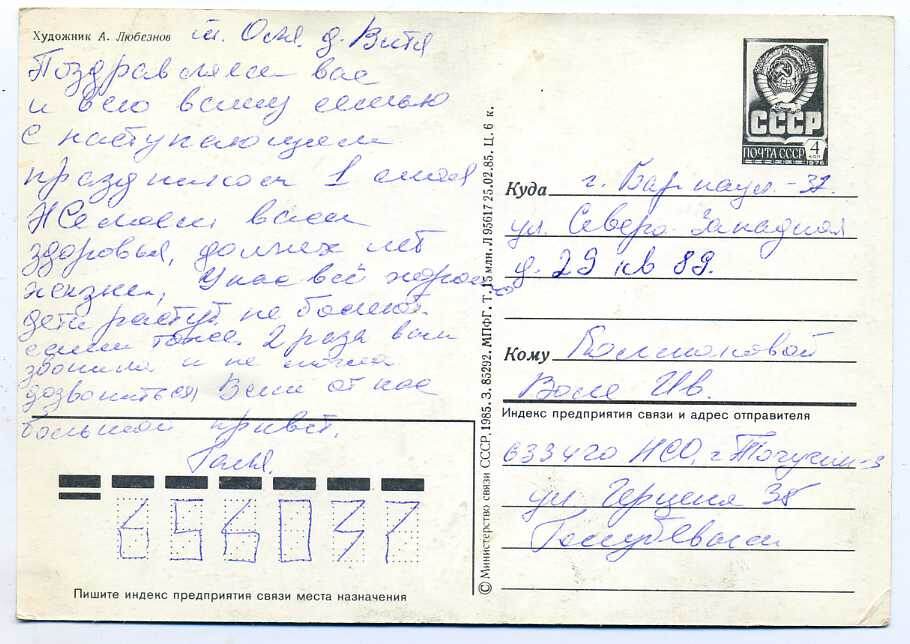 Художник А. Любезнов
т. Оля, д. Витя
Поздравляем вас
и всю вашу семью
с наступающем
праздником 1 мая
Желаем всем
здоровья, долгих лет
жизни, У нас всё хорошо
дети растут, не болеют.
сами тоже. 2 раза вам
звонила и не могла
дозвониться, Всем от нас
большой привет.
Галя.
Пишите индекс предприятия связи места назначения
© Министерство связи СССР, 1985. З. 85292. МПФГ. Т. 15 млн. Л 95617 25.02.85. Ц. 6 к.
СССР
ПОЧТА СССР 4 коп
1976
Куда г. Барнаул-37.
ул. Северо-Западная
д. 29 кв 89.
Кому Колмаковой
Ив.
Индекс предприятия связи и адрес отправителя
633420 НСО, г. Тогучин-3
ул Герцена 38
656037